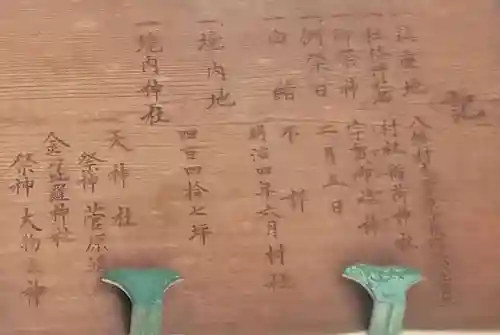 記
一鎮座地
一社格社名 村社稲荷神社
一御祭神 宇賀御魂神
一例祭日 二月五日
一由緒 不詳
明治四年六月村社
一境内地 四百四拾七坪
一境内神社 天神社
祭神 菅原道
金毘羅神社
祭神 大物主神